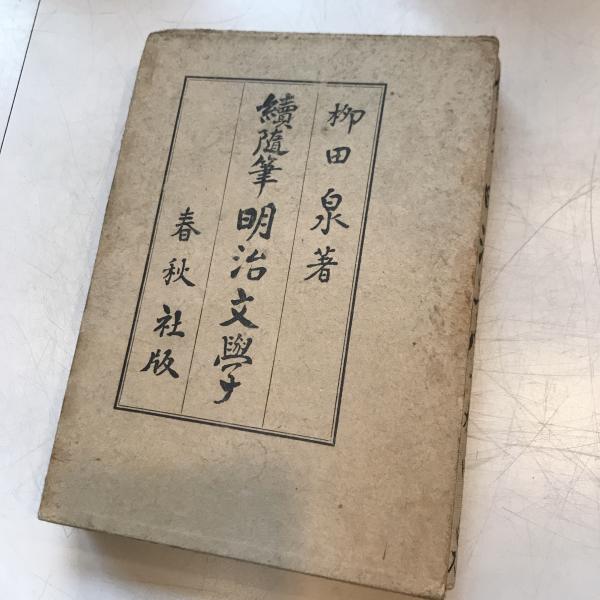 柳田泉著
續隨筆明治文學
春秋社版